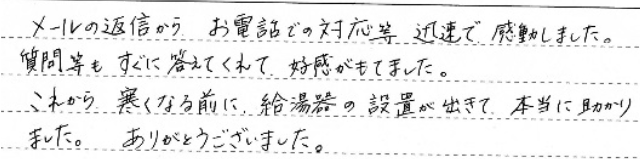 メールの返信から お電話での対応等 迅速で 感動しました。
質問等も すぐに答えてくれて 好感がもてました。
これから 寒くなる前に、給湯器の設置が出きて 本当に助かり
ました。 ありがとうございました。